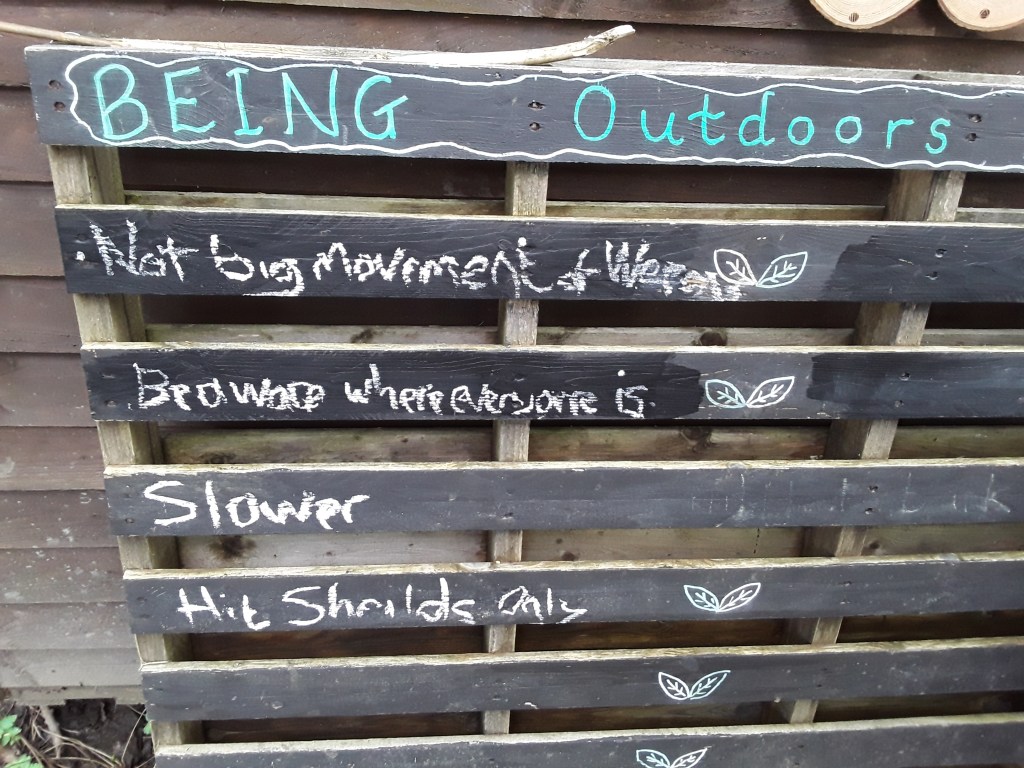 BEING Outdoors
Not big movment of
Be aware where everyone is.
Slower
Hit Sheilds Only